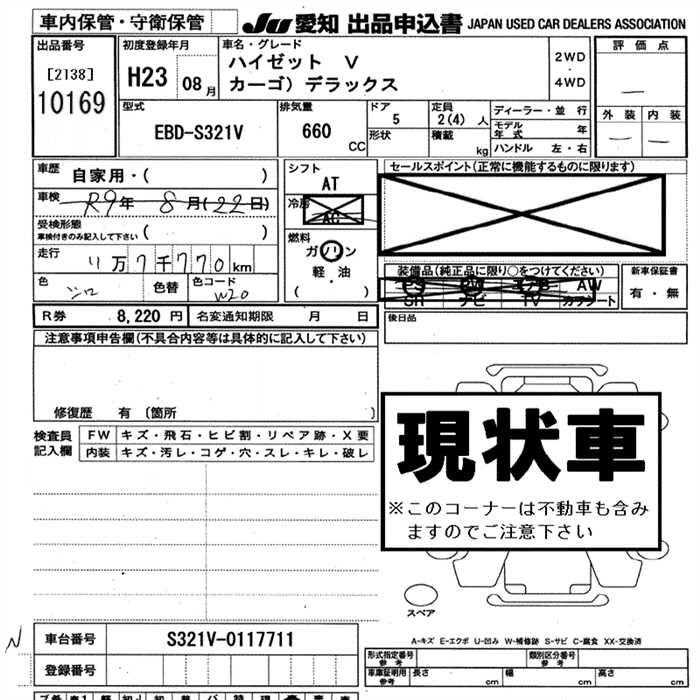 車内保管・守衛保管
JU 愛知 出品申込書 JAPAN USED CAR DEALERS ASSOCIATION
出品番号
[2138]
10169
初度登録年月
H23 08月
車名・グレード
ハイゼット V
カーゴ) デラックス
2WD
・
4WD
評価点
—
外装 内装
— —
型式
EBD-S321V
排気量
660 CC
ドア
5
形状
定員
2(4) 人
積載
kg
ディーラー・並行
モデル年式 年
ハンドル 左・右
車歴
自家用・( )
車検
R9年 8月(22日)
受検形態
車検付きのみ記入して下さい ( )
走行
11万7千770km
色 シロ 色替 色コード W20
シフト
AT
冷房
AC
燃料
ガソリン
軽・油
( )
セールスポイント(正常に機能するものに限ります)
装備品(純正品に限り○をつけてください)
PS PW エアB AW
SR ナビ TV カワシート
新車保証書
有・無
R券 8,220円 名変通知期限 月 日
後日品
注意事項申告欄(不具合内容等は具体的に記入して下さい)
修復歴 有 〔箇所 〕
検査員
記入欄
FW キズ・飛石・ヒビ割・リペア跡・X要
内装 キズ・汚レ・コゲ・穴・スレ・キレ・破レ
現状車
※このコーナーは不動車も含み
ますのでご注意下さい
スペア
A-キズ E-エクボ U-凹み W-補修跡 S-サビ C-腐食 XX-交換済
N
車台番号 S321V-0117711
登録番号
形式指定番号
参考
類別区分番号
参考
車庫証明用
参考
長さ cm 幅 cm 高さ cm